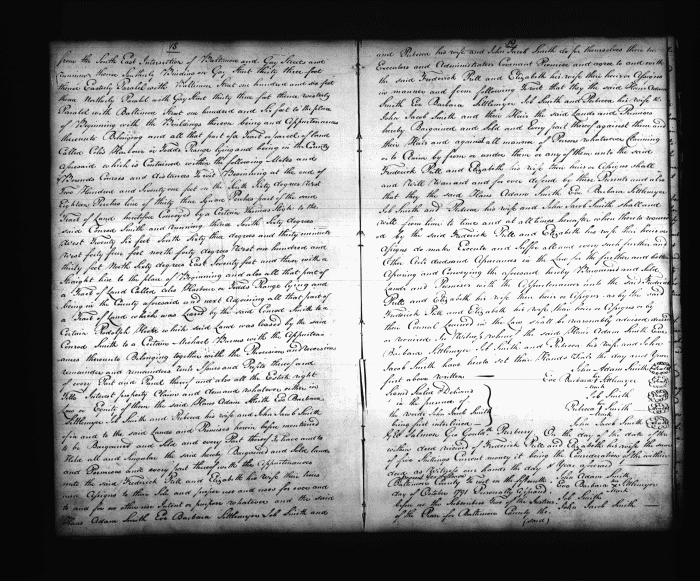 18
from the South East Intersection of Baltimore and Gay Streets and
runing thence Southerly Binding on Gay Street thirty three feet
thence Easterly Paralel with Baltimore Street one hundred and six feet
thence Northerly Paralel with Gay Street thirty three feet thence westerly
Paralel with Baltimore Street one hundred and six feet to the place
of Beginning with the Buildings thereon being and Appurtenances
thereunto Belonging and all that part of a Tract or parcel of land
Called Coles Harbour or Todds Range lying and being in the County
Aforesaid which is Contained within the following Metes and
Bounds Courses and distances to wit Beginning at the end of
Two Hundred and Seventy one feet on the South Sixty degrees West
Eighteen Perches line of thirty two Square Perches part of the said
Tract of Land heretofore Conveyed by a Certain Thomas to the
said Conrod Smith and running thence South Sixty degrees
West Twenty Six feet South Sixty two degrees and thirty minutes
West forty four feet north forty degrees West one hundred and
thirty feet North Sixty degrees East Seventy feet and then with a
Straight line to the place of Beginning and also all that part of
a Tract of Land Called also Harbour or Todds Range lying and
being in the County aforesaid and next Adjoining all that part of
a Tract of Land which was Leased by the said Conrod Smith to a
Certain Rudolph which said Land was leased by the said
Conrod Smith to a Certain Michael with the Appurtenan
ances thereunto Belonging together with the Reversion and Reversions
remainder and remainders Rents Issues and Profits thereof and
of every Part and Parcel thereof and also all the Estate right
Title Interest property Claim and demand whatsoever either in
Law or Equity of them the said Hans Adam Smith Eve Barbara
Sittlmeyer Job Smith and Rebecca his wife and John Jacob Smith
of in and to the said Lands and Premises herein before mentioned
to be Bargained and Sold and every Part thereof To have and to
Hold all and Singular the said hereby Bargained and Sold lands
and Premises and every part thereof with the Appurtenances
unto the said Frederick Pell and Elizabeth his wife their heirs
and Assigns to their Sole and proper use and uses for ever and
to and for no other use Intent or purpose whatsoever and the said
Hans Adam Smith Eve Barbara Sittlmeyer Job Smith and
19
and Rebecca his wife and John Jacob Smith do for themselves their heirs
Executors and Administrators Covenant Promise and agree to and with
the said Frederick Pell and Elizabeth his wife their heirs or Assigns
in manner and form following to wit that they the said Hans Adam
Smith Eve Barbara Sittlmeyer Job Smith and Rebecca his wife &
John Jacob Smith and their Heirs the said Lands and Premises
hereby Bargained and Sold and Every part thereof against them and
their Heirs and against all manner of Persons whatsoever claiming
or to Claim by from or under them or any of them unto the said
Frederick Pell and Elizabeth his wife their heirs or Assigns shall
and Will Warrant and for ever defend by these Presents and also
that they the said Hans Adam Smith Eve Barbara Sittlmeyer
Job Smith and Rebecca his wife and John Jacob Smith shall and
will from time to time and at all times hereafter when thereto required
by the said Frederick Pell and Elizabeth his wife their heirs or
Assigns do make Execute and Suffer all and every such further and
Other Acts and Assurances in the Law for the further and better
Assuring and Conveying the aforesaid hereby Bargained and Sold
Lands and Premises with the Appurtenances unto the said Frederick
Pell and Elizabeth his wife their heirs or Assigns as by the said
Frederick Pell and Elizabeth his wife their heirs or Assigns or by
their Counsel Learned in the Law shall be reasonably advised devised
or required In Witness whereof the said Hans Adam Smith Eve
Barbara Sittlmeyer Job Smith and Rebecca his wife and John
Jacob Smith have hereto set their Hands and Seals the day and Year
first above written
Hans Adam Smith
Eve Barbara Sittlmeyer
mark
Job Smith
Rebecca Smith
mark
John Jacob Smith
Signed Sealed & Delivered
in the presence of
the words John Jacob Smith
being first interlined
Geo Salmon Geo On the day of the date of the
within deed received of Frederick Pell and Elizabeth his wife the sum
of five Shillings Current money it being the Consideration of the within
deed as Witness our hands the day & year aforesaid
Baltimore County to wit on the fifteenth
day of October 1791 Personally Appeared
before us the Subscribers two of the Justices
of the Peace for Baltimore County the
John Adam Smith
Eve Barbara Sittlmeyer
mark
Job Smith
John Jacob Smith
(said)